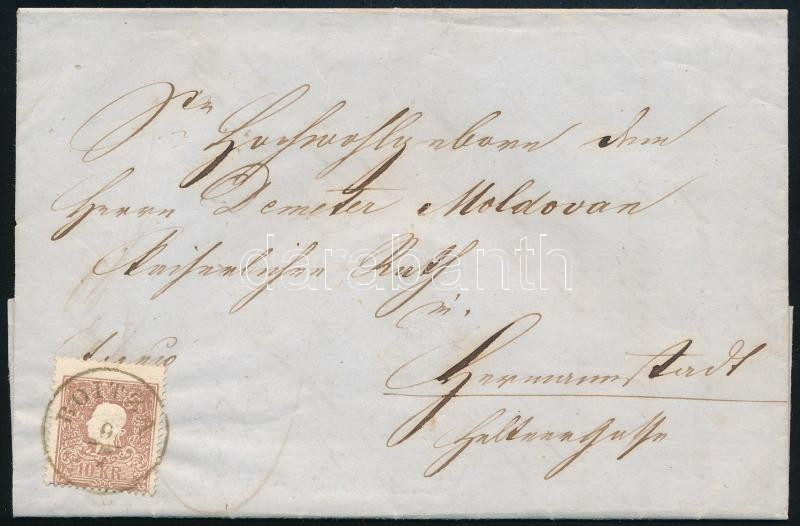 Sr Hochwohlgeboren dem
Herrn Demeter Moldovan
Kaiserlichen Rath
in
Hermannstadt
Heltnergasse
franco
10 KR
darabanth